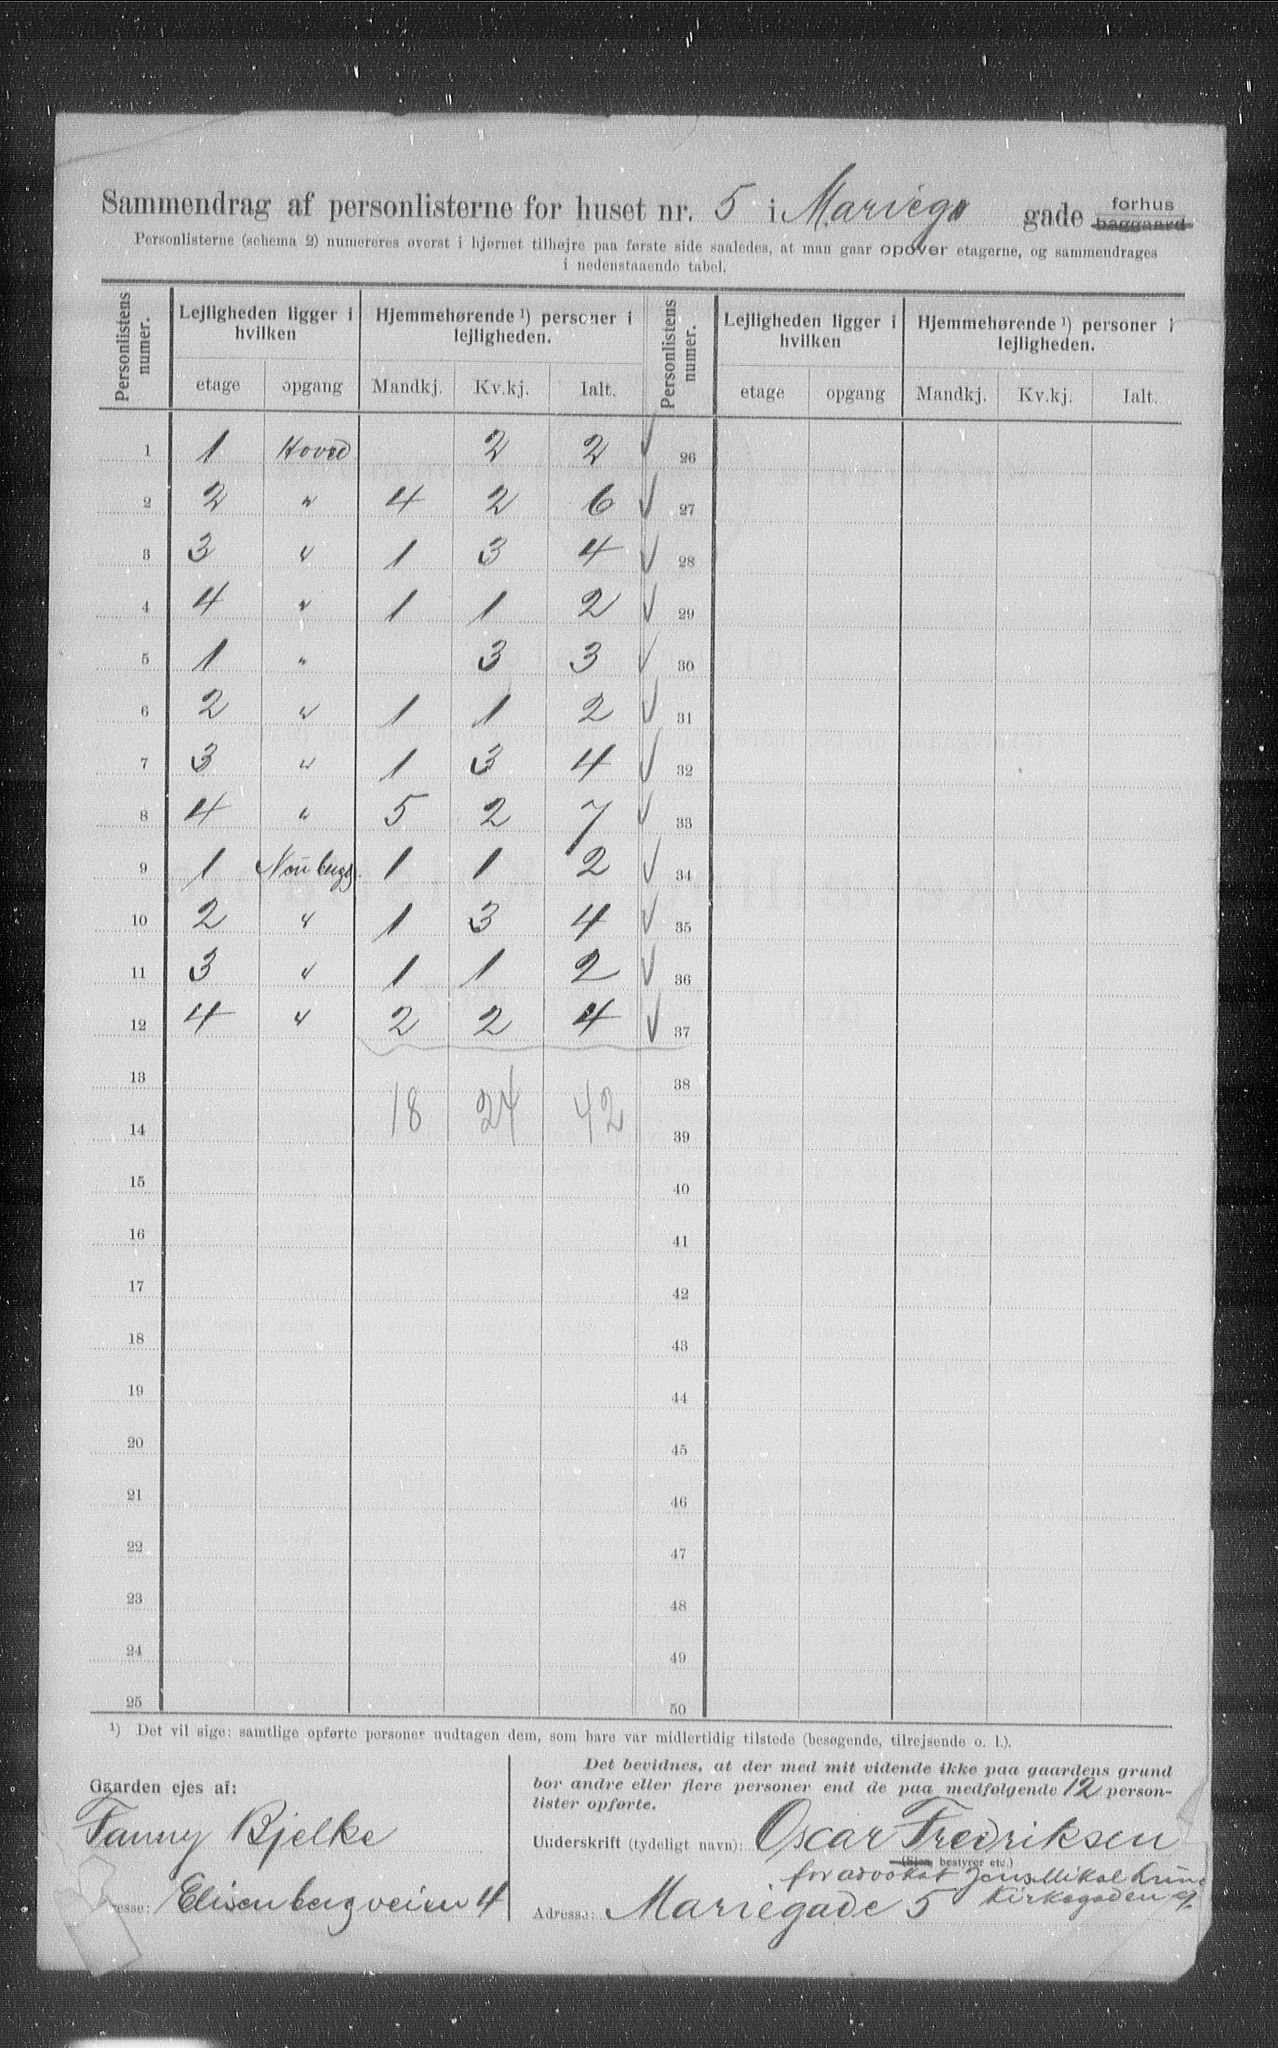 Sammendrag af personlisterne for huset nr. 5 i Mariega gade forhus baggaard
Personlisterne (schema 2) numereres øverst i hjørnet tilhøjre paa første side saaledes, at man gaar opover etagerne, og sammendrages
i nedenstaaende tabel.
Personlistens numer. Lejligheden ligger i hvilken Hjemmehørende ¹) personer i lejligheden. Personlistens numer. Lejligheden ligger i hvilken Hjemmehørende ¹) personer i lejligheden.
etage opgang Mandkj. Kv.kj. Ialt. etage opgang Mandkj. Kv.kj. Ialt.
1 1 Hoved 2 2 √ 26
2 2 " 4 2 6 √ 27
3 3 " 1 3 4 √ 28
4 4 " 1 1 2 √ 29
5 1 " 3 3 √ 30
6 2 " 1 1 2 √ 31
7 3 " 1 3 4 √ 32
8 4 " 5 2 7 √ 33
9 1 1 1 2 √ 34
10 2 " 1 3 4 √ 35
11 3 " 1 1 2 √ 36
12 4 " 2 2 4 √ 37
13 38
18 24 42
14 39
15 40
16 41
17 42
18 43
19 44
20 45
21 46
22 47
23 48
24 49
25 50
¹) Det vil sige: samtlige opførte personer undtagen dem, som bare var midlertidig tilstede (besøgende, tilrejsende o. l.).
Ggaarden ejes af:
Fanny Bjelke
Elisenbergveien 4
Det bevidnes, at der med mit vidende ikke paa gaardens grund
bor andre eller flere personer end de paa medfølgende 12 person-
lister opførte.
Underskrift (tydeligt navn): Oscar Fredriksen
(Eier, bestyrer etc.)
for advokat Jens Mikal Lund
Kirkegaden 9
Adresse: Mariegade 5